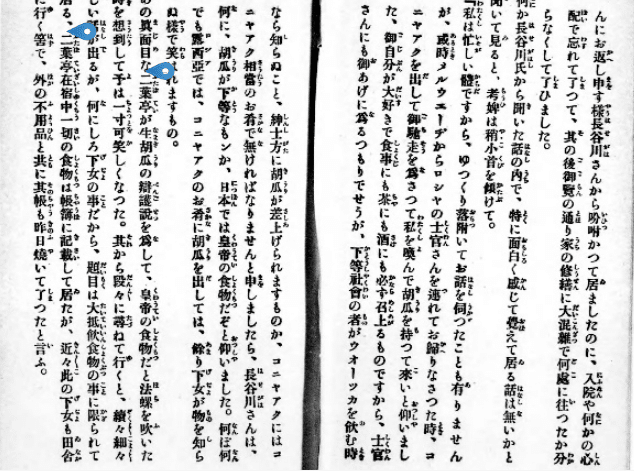 んにお返し申す様長谷川さんから吩咐かつて居ましたのに、入院や何かの心
配で忘れて了つて、其の後御覽の通り家の修繕に大混雜で何處に往つたか分
らなくして了ひました。
何か長谷川氏から聞いた話の内で、特に面白く感じて覺えて居る話は無いかと
聞いて見ると、考婢は稍小首を傾けて。
『私は忙しい體ですから、ゆつくり落附いてお話を伺つたことも有りません
が、或時メルウエーヂからロシヤの士官さんを連れてお歸りなさつた時、コ
ニヤアクを出して御馳走を爲さつて私を喚んで胡瓜を持つて來いと仰いまし
た、御自分が大好きで食事にも茶にも酒にも必ず召上るものですから、士官
さんにも御あげに爲るつもりでせうが、下等社會の者がウオーツカを飮む時
なら知らぬこと、紳士方に胡瓜が差上げられますものか、コニヤアクにはコ
ニヤアク相當のお肴で無ければなりませんと申しましたら、長谷川さんは、
何に、胡瓜が下等なもンか、日本では皇帝の食物だぞと仰いました。何ぼ何
でも露西亞では、コニヤアクのお肴に胡瓜を出しては、餘り下女が物を知ら
ぬ樣で笑はれますもの。
あの眞面目な二葉亭が生胡瓜の辯護說を爲して、皇帝の食物だと法螺を吹いた
時を想到して予は一寸可笑しくなつた。其から段々に尋ねて行くと、續々細々
しい話が出るが、何にしろ下女の事だから、題目は大抵飮食物の事に限られて
居る、二葉亭在宿中一切の食物は帳簿に記載して居たが、近々此の下女も田舍
に行く筈で、外の不用品と共に其帳も昨日燒いて了つたと言ふ。